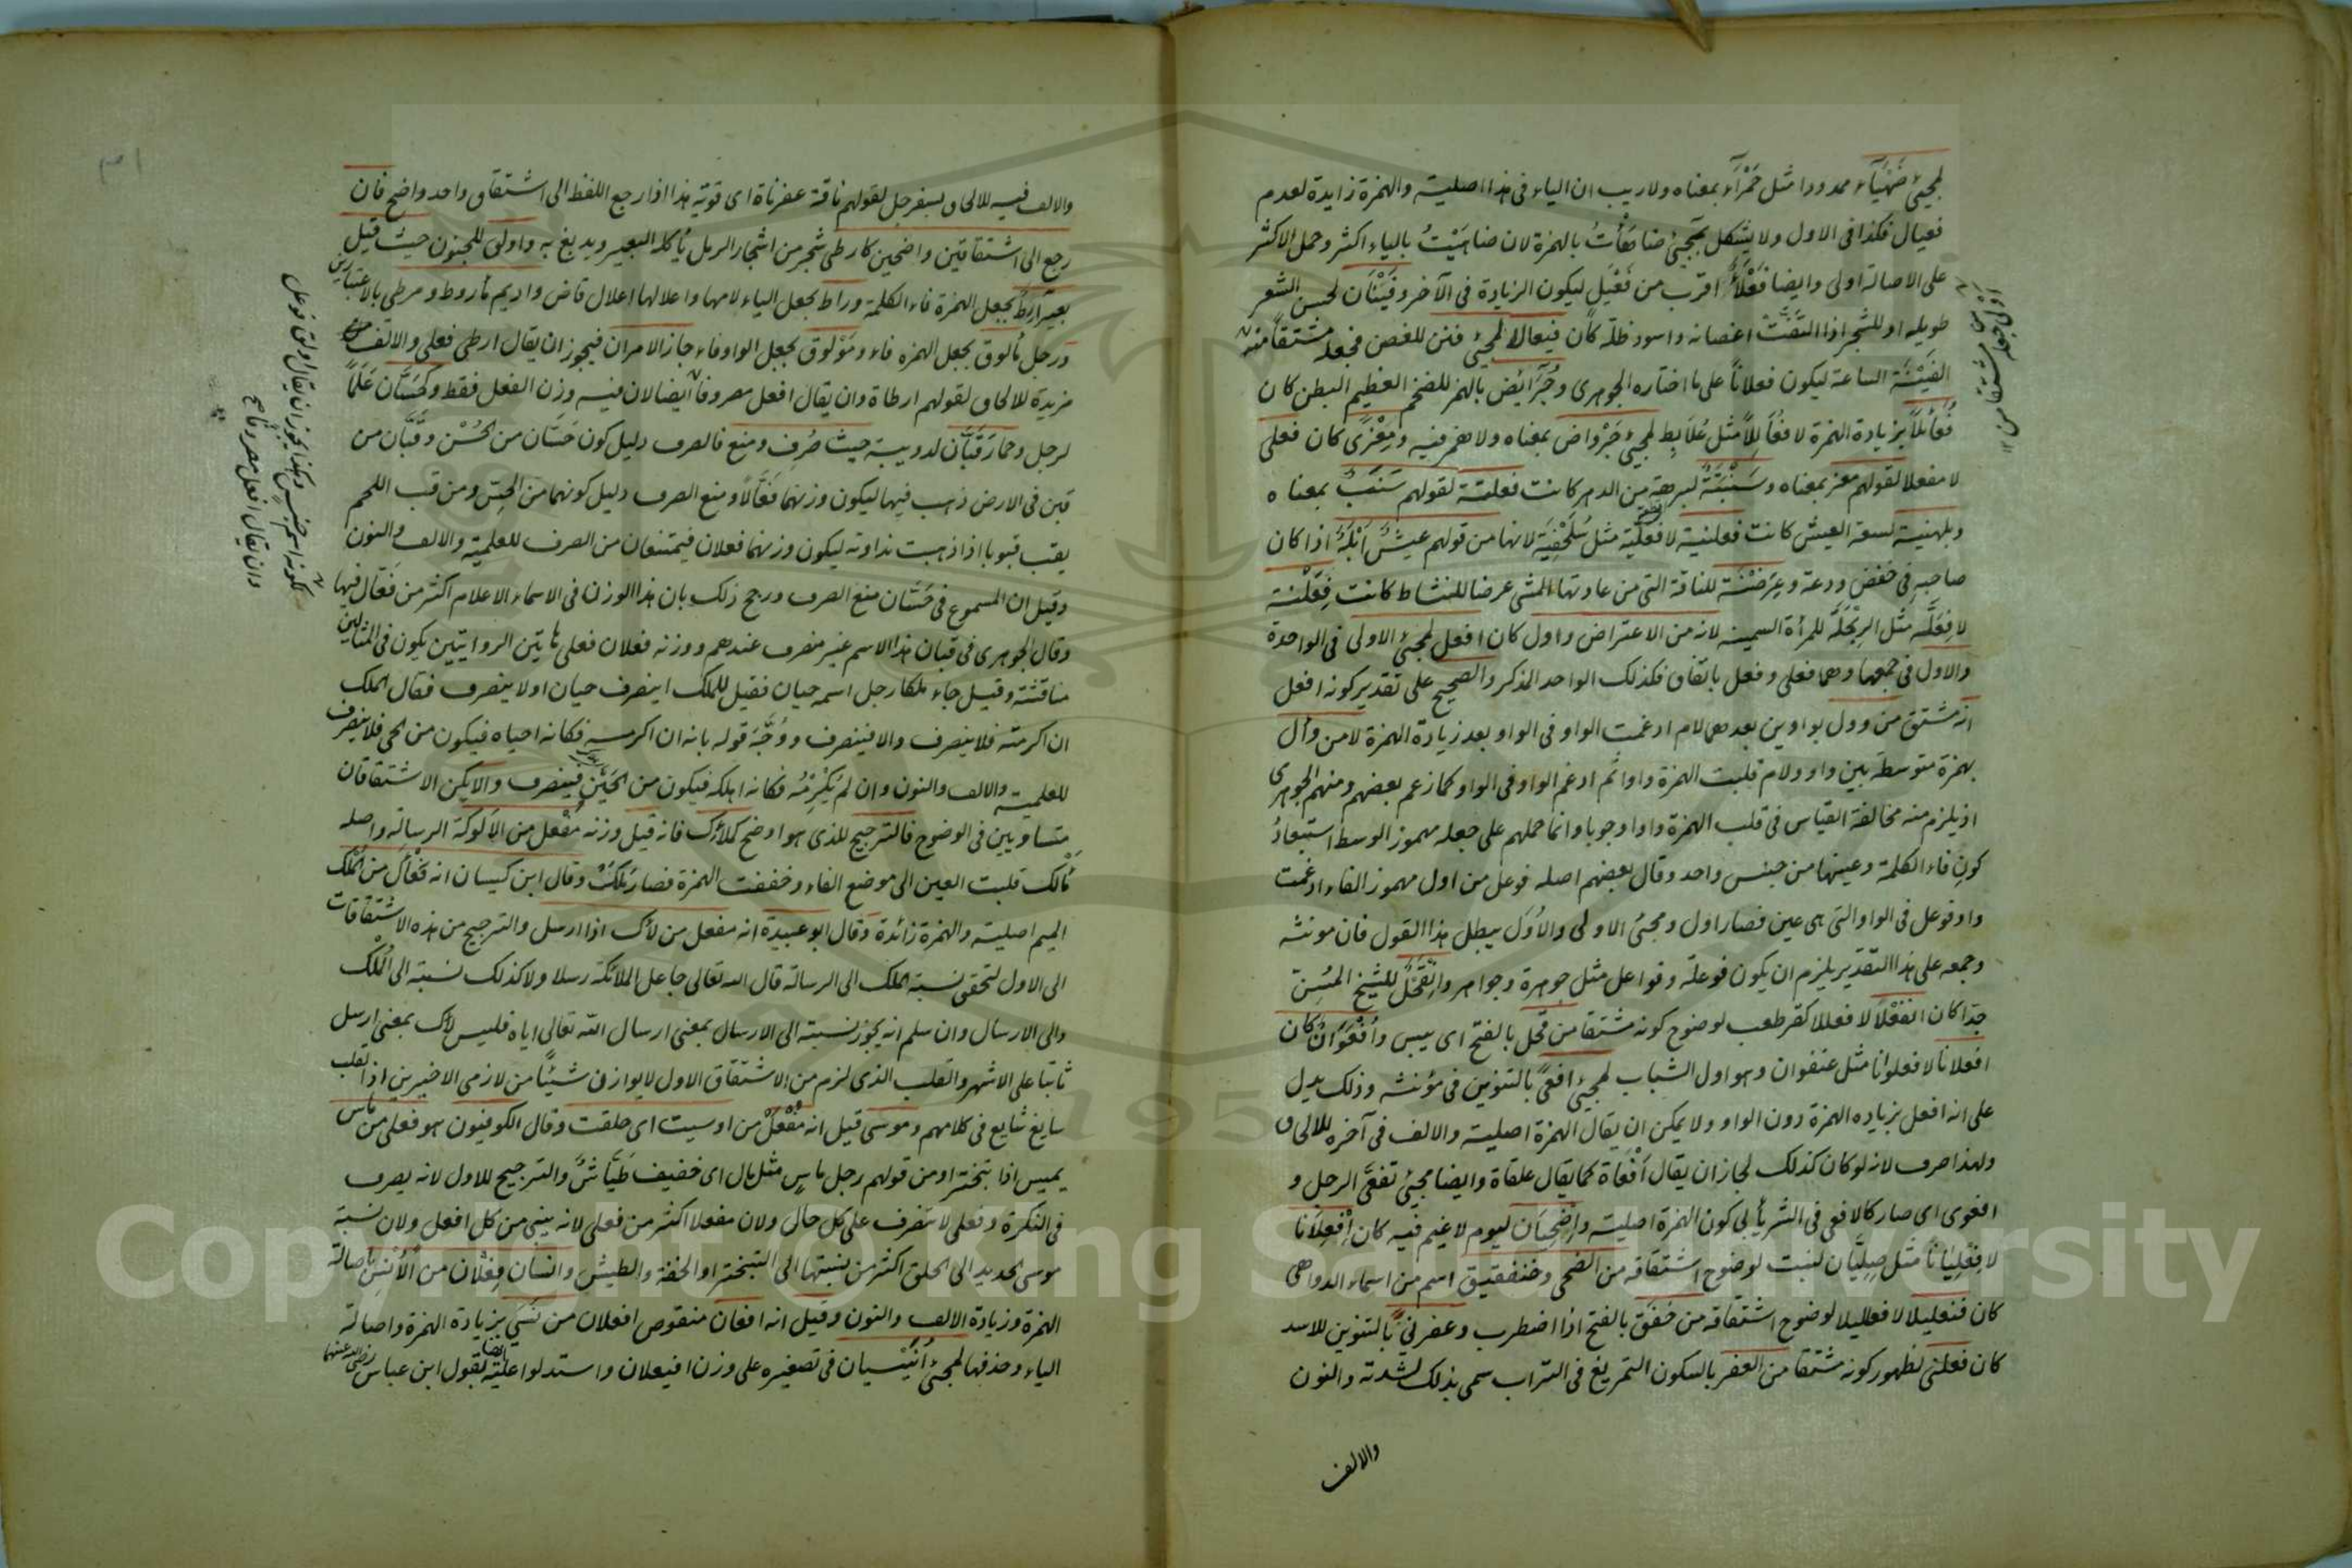 لمجيئ ضَهْيَآء ممدودا مثل حَمْرَآء بمعناه ولا ريب ان الياء فى هذا اصلية والهمزة زايدة لعدم
فعيال فكذا فى الاول ولا يشكل بمجيئ ضاهَأْتُ بالهمزة لان ضاهَيْتُ بالياء اكثر وحمل الاكثر
على الاصالة اولى وايضا فَعْلَأٌ اقرب من فَعْيَل ليكون الزيادة فى الآخر وفَيْنَان لحسن الشعر
طويله او للشجر اذا التفّتْ اغصانه واسود ظله كان فيعالا لمجيئ فنن للغصن فجعله مشتقا منه
الفَيْنَة الساعة ليكون فعلاناً على ما اختاره الجوهرى وجُرَائِض بالهمز للضخم العظيم البطن كان
فُعَائِلاً بزيادة الهمزة لا فُعَالِلاً مثل عُلَابِط لمجيئ جِرْواض بمعناه ولا همز فيه ومِعْزًى كان فعلى
لا مفعلا لقولهم معز بمعناه وسَنْبَتَةٌ لبرهة من الدهر كانت فعلتة لقولهم سَنَبٌ بمعناه
وبلهنية لسعة العيش كانت فعلنية لا فعلّية مثل سُلَحْفِيَة لانها من قولهم عيشٌ اَبْلَهُ اذا كان
صاحبه فى خفض ودعة وعِرَضْنَة للناقة التى من عادتها المشى عرضا للنشاط كانت فِعَلْنة
لا فِعَلَّة مثل الرِبَحْلَة للمرأة السمينة لانه من الاعتراض واول كان افعل لمجيئ الاولى فى الواحدة
والاول فى جمعها وهما فعلى وفعل باتفاق فكذلك الواحد المذكر والصحيح على تقدير كونه افعل
انه مشتق من وول بواوين بعدهما لام ادغمت الواو فى الواو بعد زيادة الهمزة لا من وأل
بهمزة متوسطة بين واو ولام قلبت الهمزة واوا ثم ادغم الواو فى الواو كما زعم بعضهم ومنهم الجوهرى
اذ يلزم منه مخالفة القياس فى قلب الهمزة واوا وجوبا وانما حملهم على جعله مهموز الوسط استبعادُ
كونِ فاء الكلمة وعينها من جنس واحد وقال بعضهم اصله فوعل من اول مهموز الفاء ادغمت
واو فوعل فى الواو التى هى عين فصار اول ومجئ الاولى والاُوَل يبطل هذا القول فان مونثه
وجمعه على هذا التقدير يلزم ان يكون فوعلة وفواعل مثل جوهرة وجواهر وانْقَحْلٌ للشيخ المُسِنّ
جدّا كان انفعلا لا فعللا كقرطعب لوضوح كونه مشتقا من قحل بالفتح اى يبس وأُفْعُوَانٌ كان
افعلانا لا فعلوانا مثل عنفوان وهو اول الشباب لمجيئ افعىً بالتنوين فى مؤنثه وذلك يدل
على انه افعل بزياده الهمزة دون الواو ولا يمكن ان يقال الهمزة اصلية والالف فى آخره للالحاق
ولهذا صرف لانه لو كان كذلك لجاز ان يقال أفْعَاة كما يقال علقاة وايضا مجيئ تفعّى الرجل و
افعوى اى صار كالافعى فى الشر يأبى كون الهمزة اصلية واِضْحِيَان ليوم لا غيم فيه كان اِفْعِلَانا
لا فِعْلِيَانا مثل صِلِّيَان لنبت لوضوح اشتقاقه من الضحى وخنفقيق اسم من اسماء الدواهى
كان فنعليلا لا فعلليلا لوضوح اشتقاقه من خَفَقَ بالفتح اذا اضطرب وعفرنىً بالتنوين للاسد
كان فعلنى لظهور كونه مشتقا من العفر بالسكون التمريغ فى التراب سمى بذلك لشدته والنون
والالف
والالف فيه للالحاق بسفرجل لقولهم ناقة عفرناة اى قوية هذا اذا رجع اللفظ الى اشتقاق واحد واضح فان
رجع الى اشتقاقين واضحين كارطى شجر من اشجار الرمل يأكله البعير ويدبغ به واولق للجنون حيث قيل
بعير آرِط بجعل الهمزة فاء الكلمة وراط بجعل الياء لامها واعلالها اعلال قاض واديم مأروط ومرطى بالاعتبارين
ورجل مألوق بجعل الهمزه فاء ومَوْلوق بجعل الواو فاء جاز الامران فيجوز ان يقال ارطى فعلى والالف
مزيدة للالحاق لقولهم ارطاة وان يقال افعل مصروفا ايضا لان فيه وزن الفعل فقط وكحَسّان عَلَماً
لرجل وحمار قَبّان لدويبة حيث صُرِف ومنع فالصرف دليل كون حَسّان من الحُسْن وقَبّان من
قبن فى الارض ذهب فيها ليكون وزنهما فَعّالاً ومنع الصرف دليل كونهما من الحِسّ ومن قب اللحم
يقب قبوبا اذا ذهبت نداوته ليكون وزنهما فعلان فيمتنعان من الصرف للعلمية والالف والنون
وقيل ان المسموع فى حَسّان منع الصرف ورجح ذلك بان هذا الوزن فى الاسماء الاعلام اكثر من فَعّال فيها
وقال الجوهرى فى قبان هذا الاسم غير منصرف عندهم ووزنه فعلان فعلى هاتين الروايتين يكون فى المثالين
مناقشة وقيل جاء ملكا رجل اسمه حيان فقيل للملك اينصرف حيان او لا ينصرف فقال الملك
ان اكرمته فلا ينصرف والا فينصرف ووُجِّهَ قوله بانه ان اكرمه فكانه احياه فيكون من الحى فلا ينصرف
للعلمية والالف والنون وان لم يُكْرِمْهُ فكانه اهلكه فيكون من الحَيْن فينصرف والا يكن الاشتقاقان
متساويين فى الوضوح فالترجيح للذى هو اوضح كملأك فانه قيل وزنه مَفْعل من الالوكة الرسالة واصله
مَألك قلبت العين الى موضع الفاء وخففت الهمزة فصار مَلَكٌ وقال ابن كيسان انه فعْأَل من المُلك
الميم اصلية والهمزة زائدة وقال ابو عبيدة انه مفعل من لأك اذا ارسل والترجيح من هذه الاشتقاقات
الى الاول لتحقق نسبة الملك الى الرسالة قال الله تعالى جاعل الملائكة رسلا ولا كذلك نسبته الى المُلْك
والى الارسال وان سلم انه يجوز نسبته الى الارسال بمعنى ارسال الله تعالى اياه فليس لأك بمعنى ارسل
ثابتا على الاشهر والقلب الذى لزم من الاشتقاق الاول لا يوازن شيئًا من لازمى الاخيرين اذ القلب
سايغ شايع فى كلامهم وموسى قيل انه مُفْعَلٌ من اوسيت اى حلقت وقال الكوفيون هو فعلى من ماس
يميس اذا تبختر او من قولهم رجل ماسٍ مثل مال اى خفيف طَيّاشٌ والترجيح للاول لانه يصرف
فى النكرة وفعلى لا تنصرف على كل حال ولان مفعلا اكثر من فعلى لانه يبنى من كل افعل ولان نسبة
موسى الحديد الى الحلق اكثر من نسبتها الى التبختر او الخفة والطيش وانسان فِعْلان من الاُنْس باصالة
الهمزة وزيادة الالف والنون وقيل انه افعان منقوص افعلان من نَسِىَ بزيادة الهمزة واصالة
الياء وحذفها لمجيئ أُنَيْسيان فى تصغيره على وزن افيعلان واستدلوا عليه ايضا بقول ابن عباس رضى الله عنهما